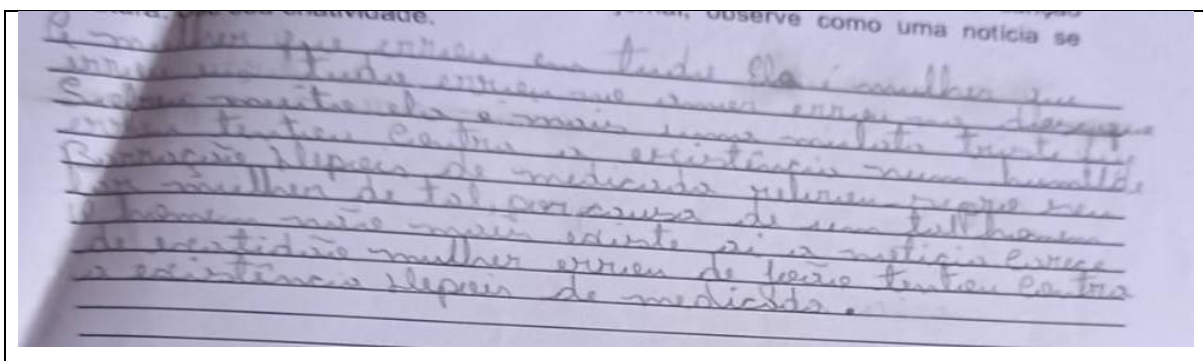 criatividade. observe como uma notícia se
A mulher que errou em tudo Ela é mulher que
errou em tudo errou no amor errou no
muito ela é mais uma mulata triste que
errou tentou Contra a existência num humilde
Barracão Depois de medicada
Por mulher de tal, por causa de um tal homem
o homem não mais existe ai a noticia carece
de exatidão mulher errou de João tentou Contra
a existência Depois de medicada.